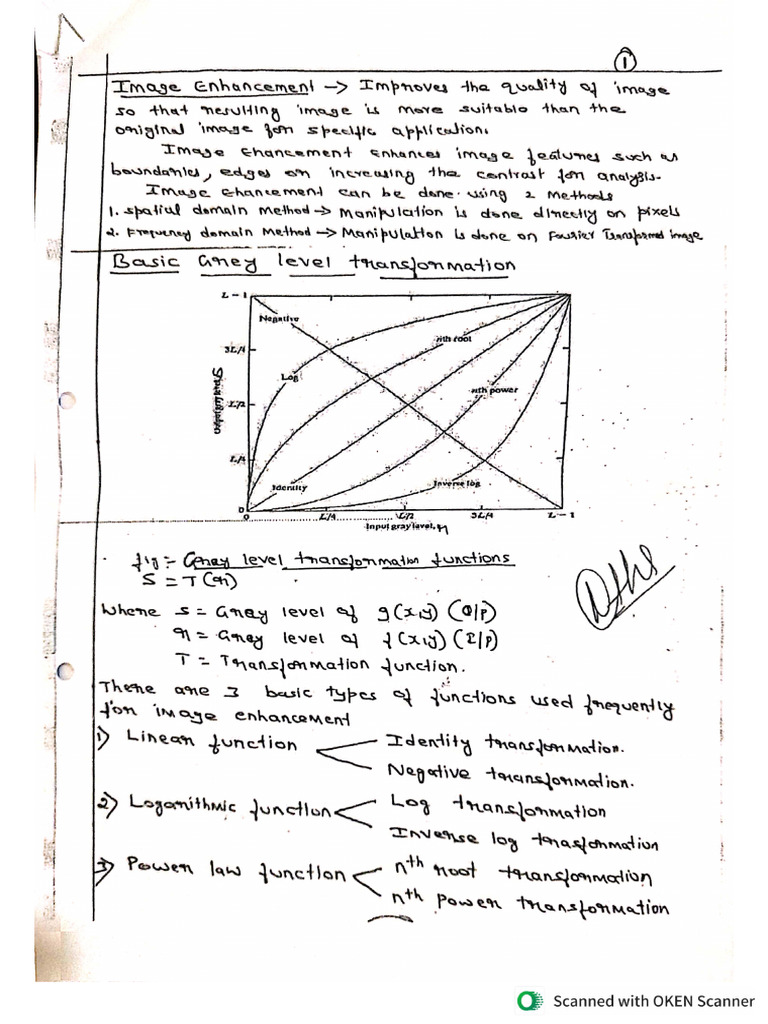 1
Image Enhancement → Improves the quality of image
so that resulting image is more suitable than the
original image for specific application.
Image Ehancement enhances image features such as
boundaries, edges or increasing the contrast for analysis.
Image Ehancement can be done using 2 Methods
1. spatial domain Method → Manipulation is done directly on pixels
2. Frequency domain Method → Manipulation is done on Fourier Transformed image
Basic Grey level transformation
L-1
Negative
nth root
3L/4
Log
nth power
L/2
Output gray level, s
L/4
Identity
Inverse log
0
0 L/4 L/2 3L/4 L-1
Input gray level, r
fig :- Gray level transformation functions
S = T(r)
Where s = Gray level of g(x,y) (O/P)
r = Gray level of f(x,y) (I/P)
T = Transformation function.
There are 3 basic types of functions used frequently
for image enhancement
1) Linear function
Identity transformation.
Negative transformation.
2) Logarithmic function
Log transformation
Inverse log trasformation
3) Power law function
nth root transformation
nth power transformation
Scanned with OKEN Scanner